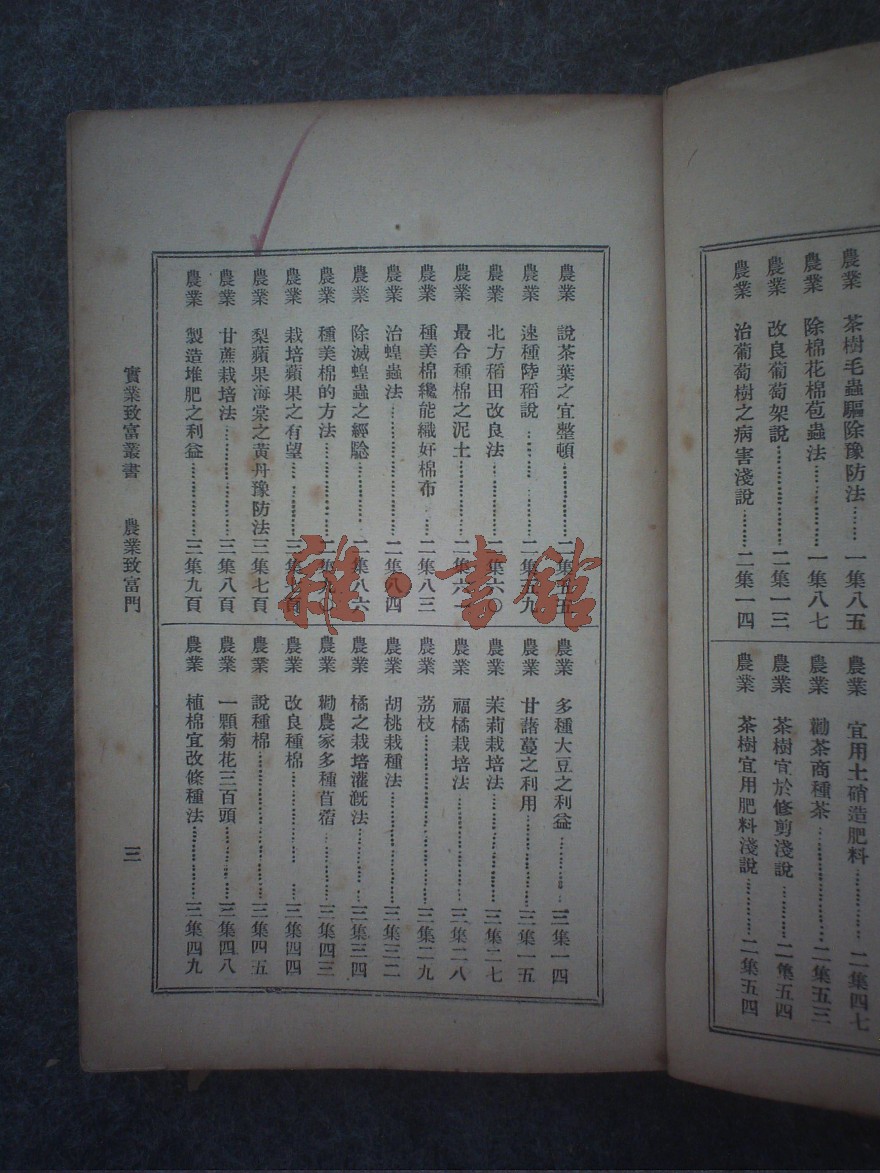 農業 茶樹毛蟲驅除豫防法……一集八五
農業 除棉花棉苞蟲法…………一集八七
農業 改良葡萄架說…………二集一三
農業 治葡萄樹之病害淺說……二集一四
農業 宜用土硝造肥料…………二集四七
農業 勸茶商種茶…………二集五三
農業 茶樹宜於修剪淺說………二集五四
農業 茶樹宜用肥料淺說………二集五四
農業 說茶葉之宜整頓…………二集五五
農業 速種陸稻說…………二集五九
農業 北方稻田改良法…………二集六〇
農業 最合種棉之泥土…………二集六一
農業 種美棉纔能織好棉布……二集八三
農業 治蝗蟲法…………二集八四
農業 除滅蝗蟲之經驗…………二集八六
農業 種美棉的方法…………二集九〇
農業 栽培蘋果之有望…………三集七頁
農業 梨蘋果海棠之黃丹豫防法三集七頁
農業 甘蔗栽培法…………三集八頁
農業 製造堆肥之利益…………三集九頁
農業 多種大豆之利益…………三集一四
農業 甘藷蔓之利用…………三集一五
農業 茉莉栽培法…………三集二七
農業 福橘栽培法…………三集二八
農業 荔枝…………三集二九
農業 胡桃栽種法…………三集三二
農業 橘之栽培灌漑法…………三集三四
農業 勸農家多種苜蓿…………三集四三
農業 改良種棉…………三集四四
農業 說種棉…………三集四五
農業 一顆菊花三百頭…………三集四八
農業 植棉宜改條種法…………三集四九
實業致富叢書 農業致富門 三
雜·書館